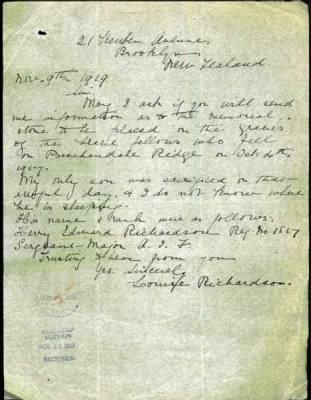 21 Reuben Avenue,
Brooklyn,
New Zealand.
Nov. 9th 1919
Sir,
May I ask if you will send
me information as to the memorial
stone to be placed on the graves
of the fellows who fell
on Passchendale Ridge on Oct. 4th,
1917.
My only son was sacrificed on that
awful day, & I do not know where
he is sleeping.
His name & rank were as follows,
Harry Edward Richardson Reg. No. 1817
Sergeant-Major A. I. F.
Trusting to hear from you
Yrs. Sincerely
Louise Richardson.
SECTION
RECEIVED